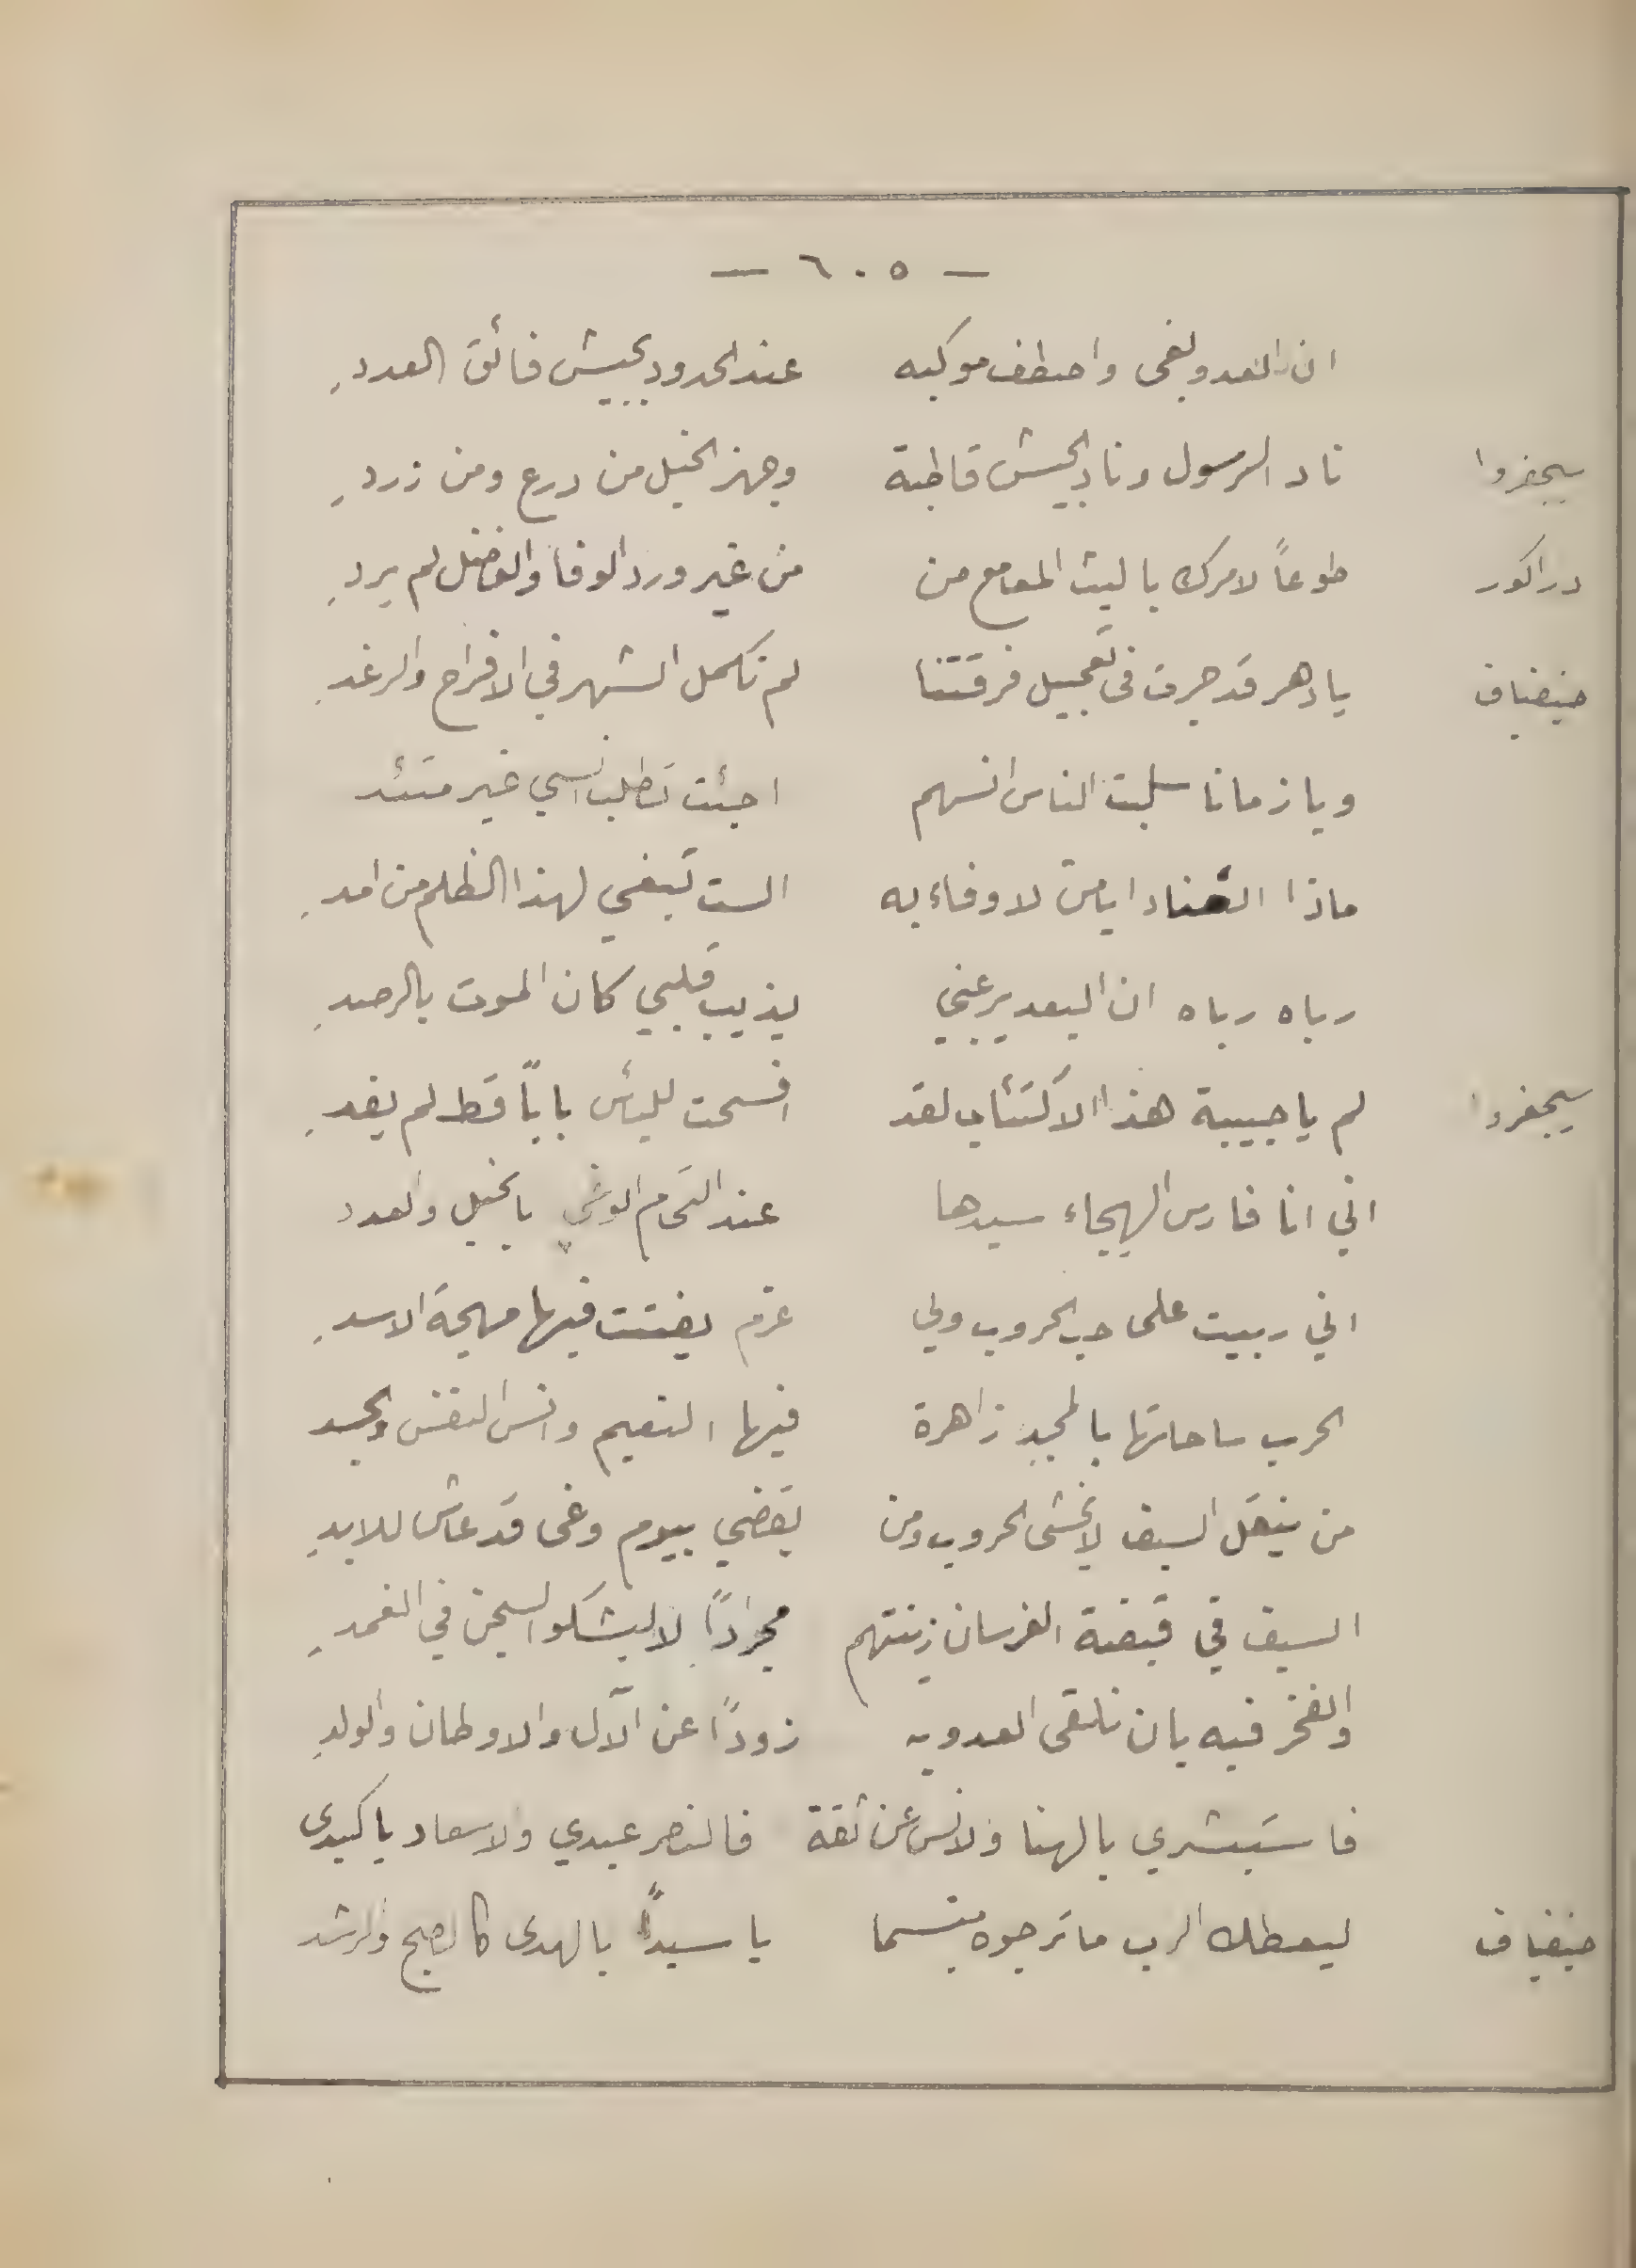 — ٦٠٥ —
ان العدو بغى واصطف موكبه عند الحدود بجيش فائق العددِ
سيجفروا ناد الرسول وناد الجيش قاطبة وجهز الخيل من درع ومن زردِ
دراكور طوعاً لامرك يا ليث المعامع من من غير ورد الوفا والفضل لم يردِ
جنفياف يا دهر قد جرت في تعجيل فرقتنا لم تكمل الشهر في الافراح والرغدِ
ويا زمانا سلبت الناس انسهم اجئت تطلب انسي غير متئد
ماذا العناد ايا من لا وفاء به الست تبغي لهذا الظلم من امدِ
رباه رباه ان البعد يرعبني يذيب قلبي كان الموت بالرصدِ
سيجفروا لم يا حبيبة هذا الاكتئاب لقد افسحت لليأس باباً قط لم يفدِ
اني انا فارس الهيجاء سيدها عند التحام الوغى بالخيل والعدد
اني ربيت على حب الحروب ولي عزم يفتت فيها مهجة الاسدِ
الحرب ساحاتها بالمجدِ زاهرة فيها النعيم وانس النفس والجسد
من ينقل السيف لا يخشى الحروب ومن يقضي بيوم وغى قد عاش للابدِ
السيف في قبضة الفرسان زينتهم مجرداً لا ليشكو السجن في الغمدِ
والفخر فيه بان نلتقى العدو به زوداً عن الآل والاوطان والولدِ
فاستبشري بالهنا والانس عن ثقة فالنصر عبدي والاسعاد يا كبدي
جنفياف ليعطك الرب ما ترجوه مبتسما يا سيداً بالهدى كالصبح والرشد